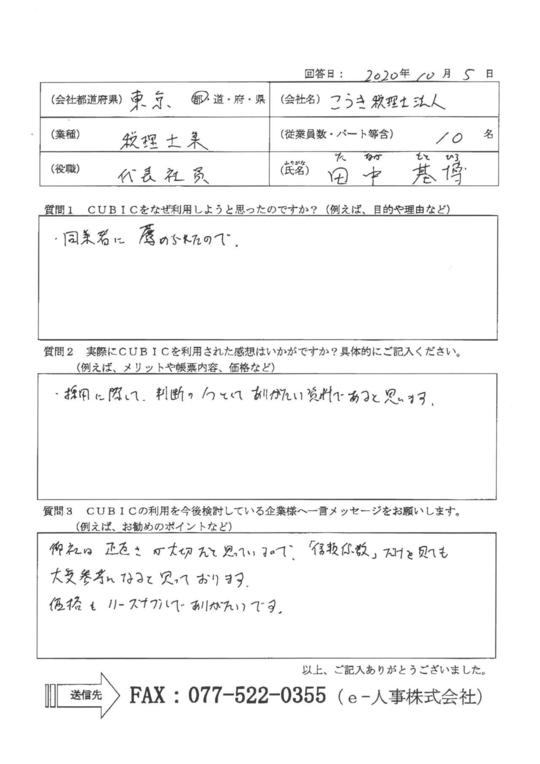 回答日： 2020年 10 月 5 日
(会社都道府県) 東京 都・道・府・県 (会社名) こうき税理士法人
(業種) 税理士業 (従業員数・パート等含) 10 名
(役職) 代表社員 (氏名) ふりがな た なか もと ひろ 田中 基博
質問１ ＣＵＢＩＣをなぜ利用しようと思ったのですか？（例えば、目的や理由など）
・同業者に薦められたので。
質問２ 実際にＣＵＢＩＣを利用された感想はいかがですか？具体的にご記入ください。
（例えば、メリットや帳票内容、価格など）
・採用に際して、判断の1つとしてありがたい資料であると思います。
質問３ ＣＵＢＩＣの利用を今後検討している企業様へ一言メッセージをお願いします。
（例えば、お勧めのポイントなど）
は 正直さが大切だと思っているので、「信頼係数」だけを見ても
大変参考になると思っております。
価格もリーズナブルでありがたいです。
以上、ご記入ありがとうございました。
送信先 FAX：077-522-0355（ｅ-人事株式会社）